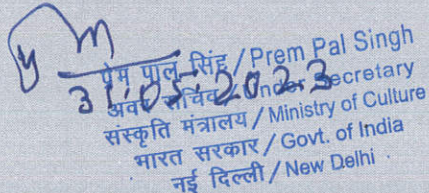 प्रेम पाल सिंह / Prem Pal Singh
31.05.2023
अवर सचिव / Under Secretary
संस्कृति मंत्रालय / Ministry of Culture
भारत सरकार / Govt. of India
नई दिल्ली / New Delhi